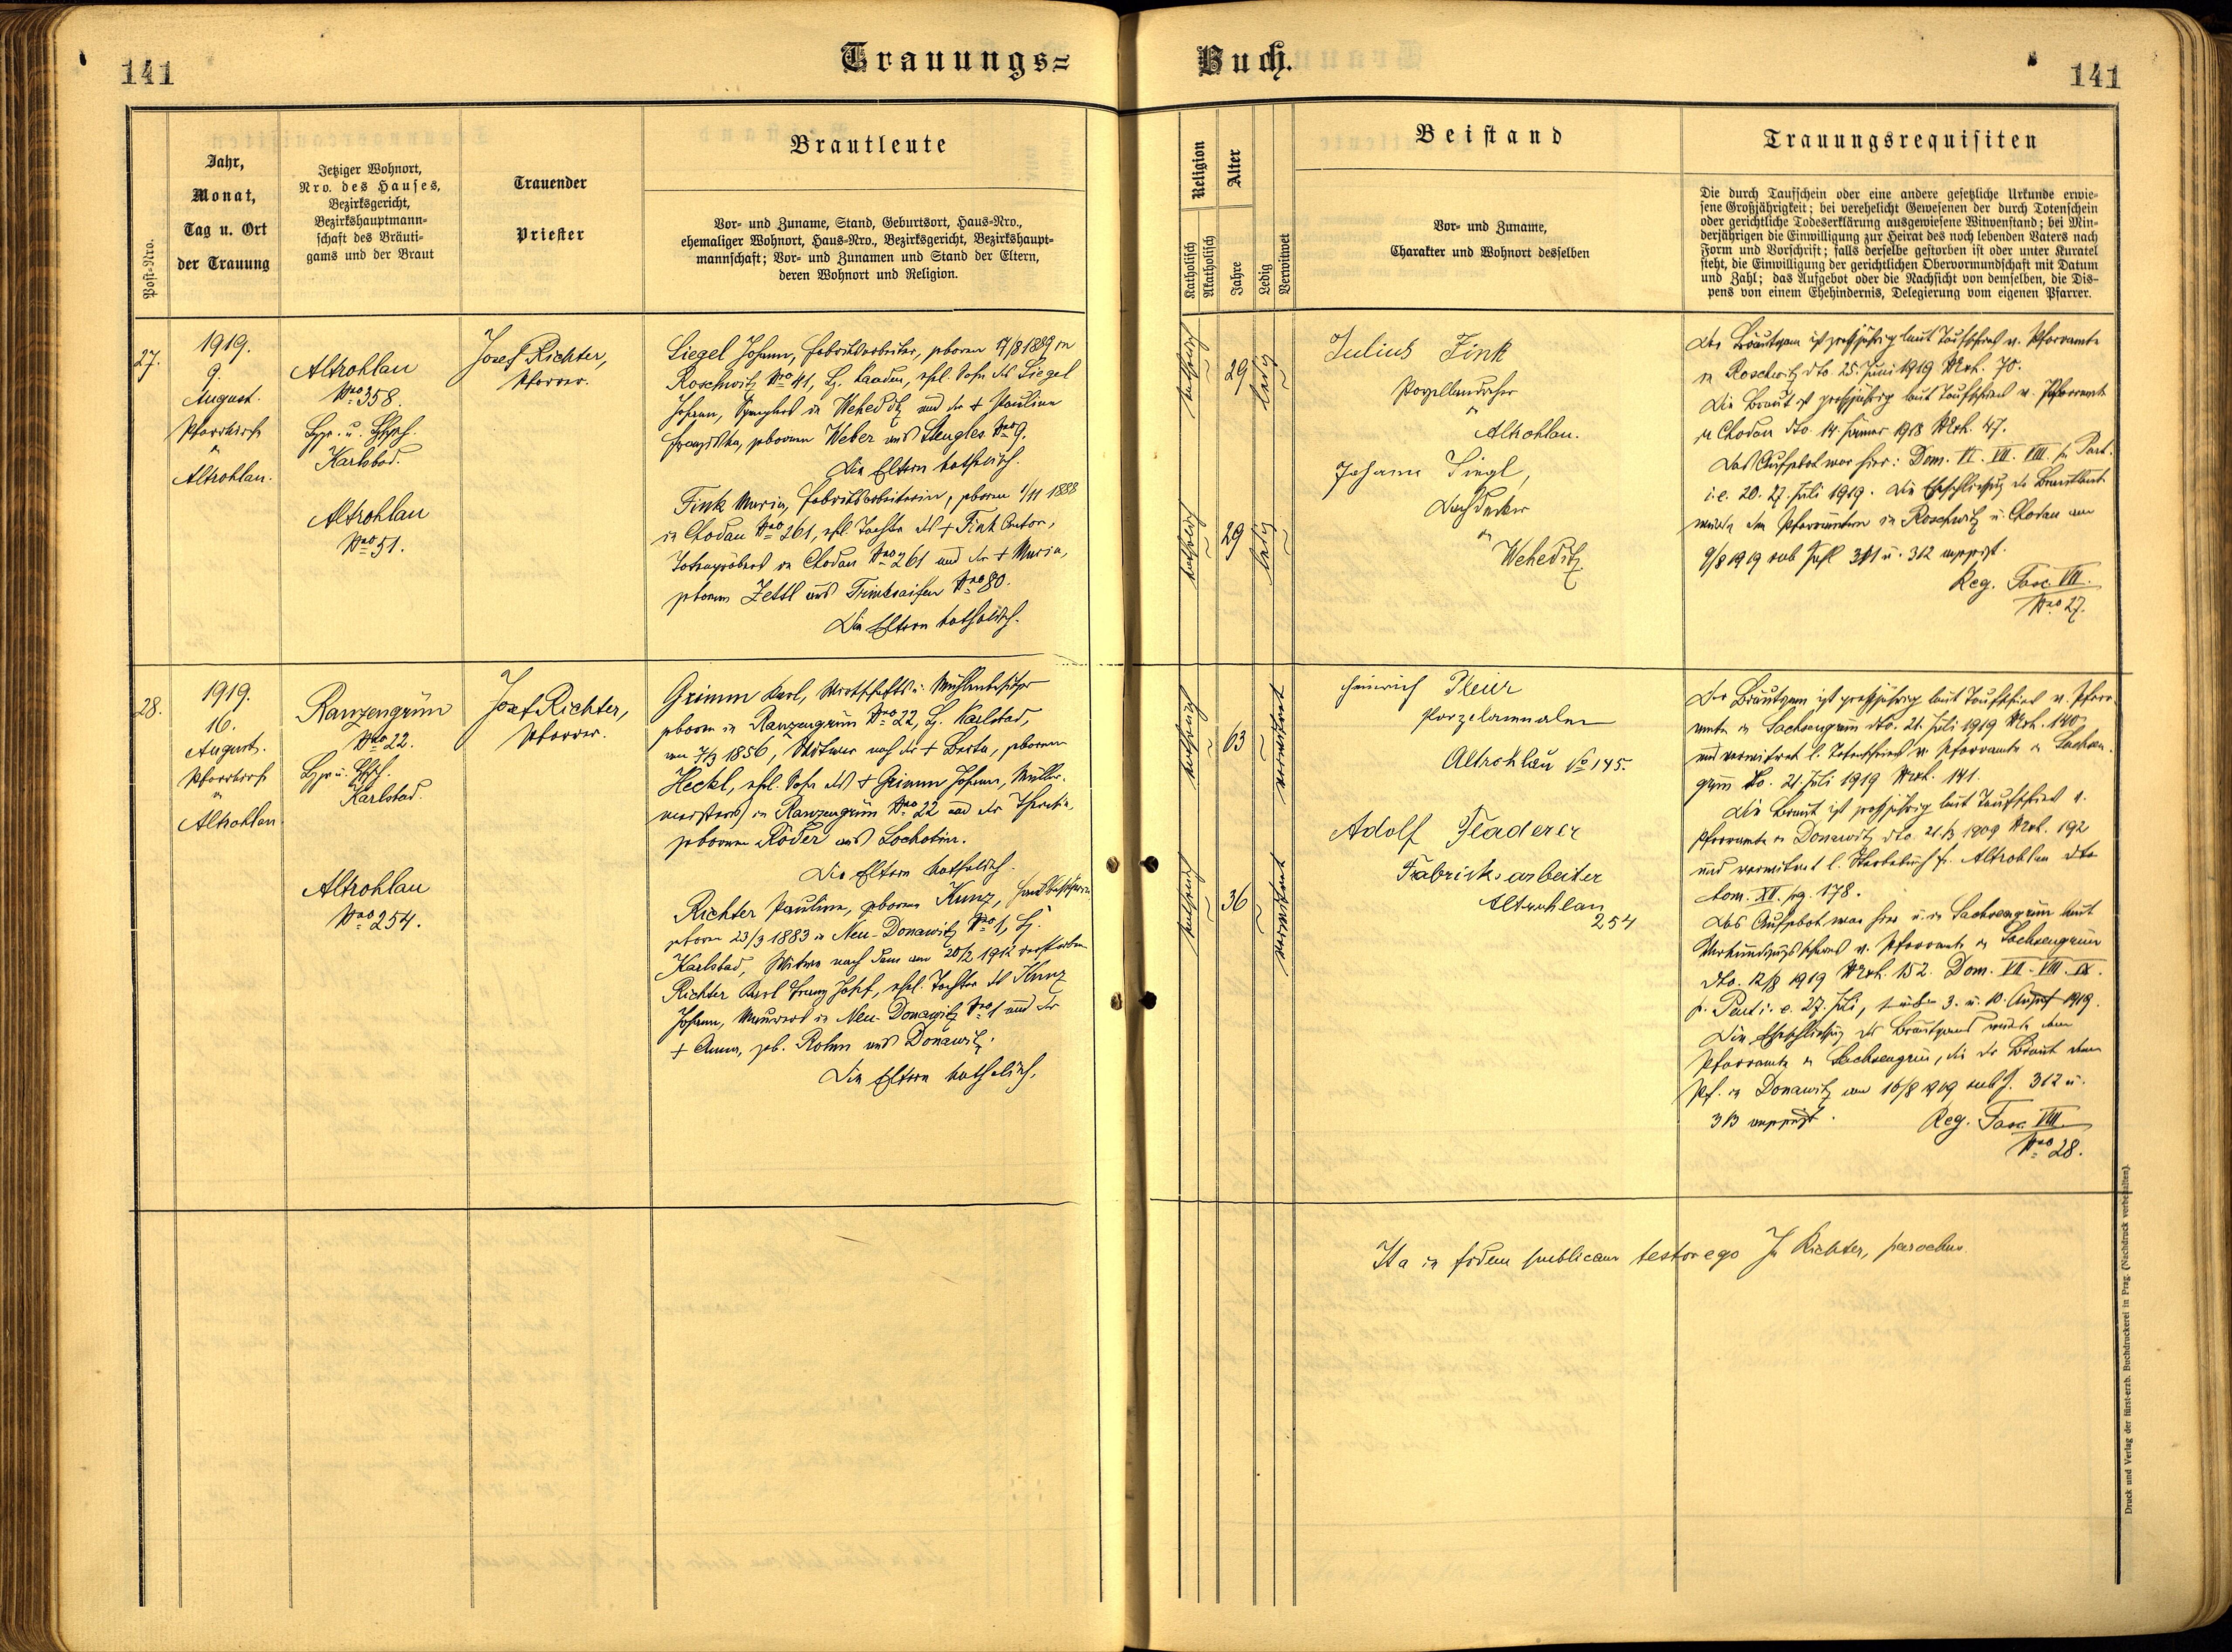 141
Trauungs=
Buch.
141
Post=Nro.
Jahr,
Monat,
Tag u. Ort
der Trauung
Jetziger Wohnort,
Nro. des Hauses,
Bezirksgericht,
Bezirkshauptmann=
schaft des Bräuti=
gams und der Braut
Trauender
Priester
Brautleute
Vor= und Zuname, Stand, Geburtsort, Haus=Nro.,
ehemaliger Wohnort, Haus=Nro., Bezirksgericht, Bezirkshaupt=
mannschaft; Vor= und Zunamen und Stand der Eltern,
deren Wohnort und Religion.
Religion
Katholisch
Akatholisch
Alter
Jahre
Ledig
Verwitwet
Beistand
Vor= und Zuname,
Charakter und Wohnort desselben
Trauungsrequisiten
Die durch Taufschein oder eine andere gesetzliche Urkunde erwie=
sene Großjährigkeit; bei verehelicht Gewesenen der durch Totenschein
oder gerichtliche Todeserklärung ausgewiesene Witwenstand; bei Min=
derjährigen die Einwilligung zur Heirat des noch lebenden Vaters nach
Form und Vorschrift; falls derselbe gestorben ist oder unter Kuratel
steht, die Einwilligung der gerichtlichen Obervormundschaft mit Datum
und Zahl; das Aufgebot oder die Nachsicht von demselben, die Dis=
pens von einem Ehehindernis, Delegierung vom eigenen Pfarrer.
27.
1919.
9.
August.
Pfarrkirche
in
Altrohlau.
Altrohlau
Nro 358.
Karlsbad.
Altrohlau
Nro 51.
Josef Richter,
Pfarrer.
Siegel Johann, Fabriksarbeiter, geboren 17/8 1889 in
Roschwitz Nro 41, Bz. Kaaden, ehel. Sohn des Siegel
Johann, Spenglers in Wehediz und der + Pauline
Franziska, geborenen Weber aus Stengles Nro 9.
Die Eltern katholisch.
Fink Maria, Fabriksarbeiterin, geboren 1/11 1888
in Chodau Nro 261, ehel. Tochter des + Fink Anton,
Totengräbers in Chodau Nro 261 und der + Maria,
geborenen Zettl aus Trinkseifen Nro 80.
Die Eltern katholisch.
katholisch
29
ledig
katholisch
29
ledig
Julius Fink
Porzellandreher
in
Altrohlau.
Johann Siegl,
Dachdecker
in
Wehediz
Der Bräutigam ist großjährig laut Taufschein v. Pfarramte
in Roschwitz dto. 25. Juni 1919 Nrh. 70.
Die Braut ist großjährig laut Taufschein v. Pfarramte
in Chodau dto 14. Jänner 1918 Nrh. 47.
Das Aufgebot war hier: Dom. VI. VII. VIII. p. Pent.
i. e. 20. 27. Juli 1919. Die Eheschließung der Brautleute
wurde den Pfarrämtern in Roschwitz u. Chodau am
9/8 1919 sub Zahl 311 u. 312 angezeigt.
Reg. Fasc. VII.
Nro 27.
28.
1919.
16.
August.
Pfarrkirche
in
Altrohlau
Ranzengrün
Nro 22.
Karlsbad.
Altrohlau
Nro 254.
Josef Richter,
Pfarrer.
Grimm Karl, Wirtschafts u. Mühlenbesitzer
geboren in Ranzengrün Nro 22, Bz. Karlsbad,
am 7/3 1856, Witwer nach der + Berta, geborenen
Heckl, ehel. Sohn des + Grimm Johann, Müller=
meisters in Ranzengrün Nro 22 und der Theresia,
geborenen Röder aus Lochotin.
Die Eltern katholisch.
Richter Pauline, geborene Kunz, Hausbesitzerin
geboren 23/3 1883 in Neu-Donawitz Nro 1, Bz.
Karlsbad, Witwe nach dem am 20/2 1912 verstorbenen
Richter Karl Franz Josef, ehel. Tochter des Kunz
Johann, Maurers in Neu-Donawitz Nro 1 und der
+ Anna, geb. Rohm aus Donawitz.
Die Eltern katholisch.
katholisch
63
verwitwet
katholisch
36
verwitwet
Heinrich
Porzelanmaler
Altrohlau No 145.
Adolf Fladerer
Fabriksarbeiter
Altrohlau
254
Der Bräutigam ist großjährig laut Taufschein v. Pfarr=
amte in Sachsengrün dto. 21. Juli 1919 Nrh. 140
und verwitwet l. Totenschein v. Pfarramte in Sachsen=
grün dto. 21. Juli 1919 Nrh. 141.
Die Braut ist großjährig laut Taufschein v.
Pfarramte in Donawitz dto. 21/3 1909 Nrh. 192
und verwitwet l. Sterbebuch f. Altrohlau dto
tom. XII. pg. 178.
Das Aufgebot war hier u. in Sachsengrün laut
Verkündigungsschein v. Pfarramte in Sachsengrün
dto. 12/8 1919 Nrh. 152. Dom. VII. VIII. IX.
p. Pent i. e. 27. Juli, 3. u. 10. August 1919.
Die Eheschließung des Bräutigams wurde dem
Pfarramte in Sachsengrün, die der Braut dem
Pf. in Donawitz am 16/8 1919 sub Z. 312 u.
313 angezeigt.
Reg. Fasc. VIII.
Nro 28.
Ita in fidem publicam testor ego Jos Richter, parochus.
Druck und Verlag der fürst-erzb. Buchdruckerei in Prag. (Nachdruck vorbehalten).